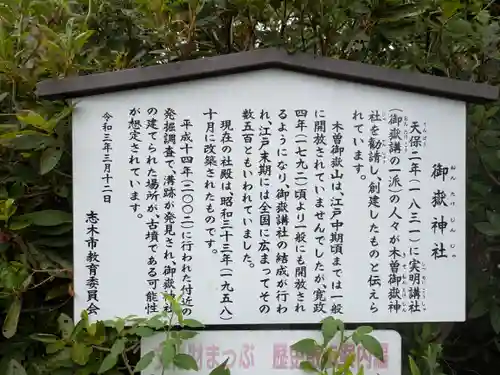 御嶽神社
おんたけじんじゃ
天保二年（一八三一）に実明講社
（御嶽講の一派）の人々が木曽御嶽神
社を勧請し、創建したものと伝えら
れています。
木曽御嶽山は、江戸中期頃までは一般
に開放されていませんでしたが、寛政
四年（一七九二）頃より一般にも開放され
るようになり御嶽講社の結成が行わ
れ、江戸末期には全国に広まってその
数五百ともいわれていました。
現在の社殿は、昭和三十三年（一九五八）
十月に改築されたものです。
平成十四年（二〇〇二）に行われた付近の
発掘調査で溝跡が発見され、御嶽神社
の建てられた場所が、古墳である可能性
が想定されています。
令和三年三月十二日
志木市教育委員会
財マップ 歴史